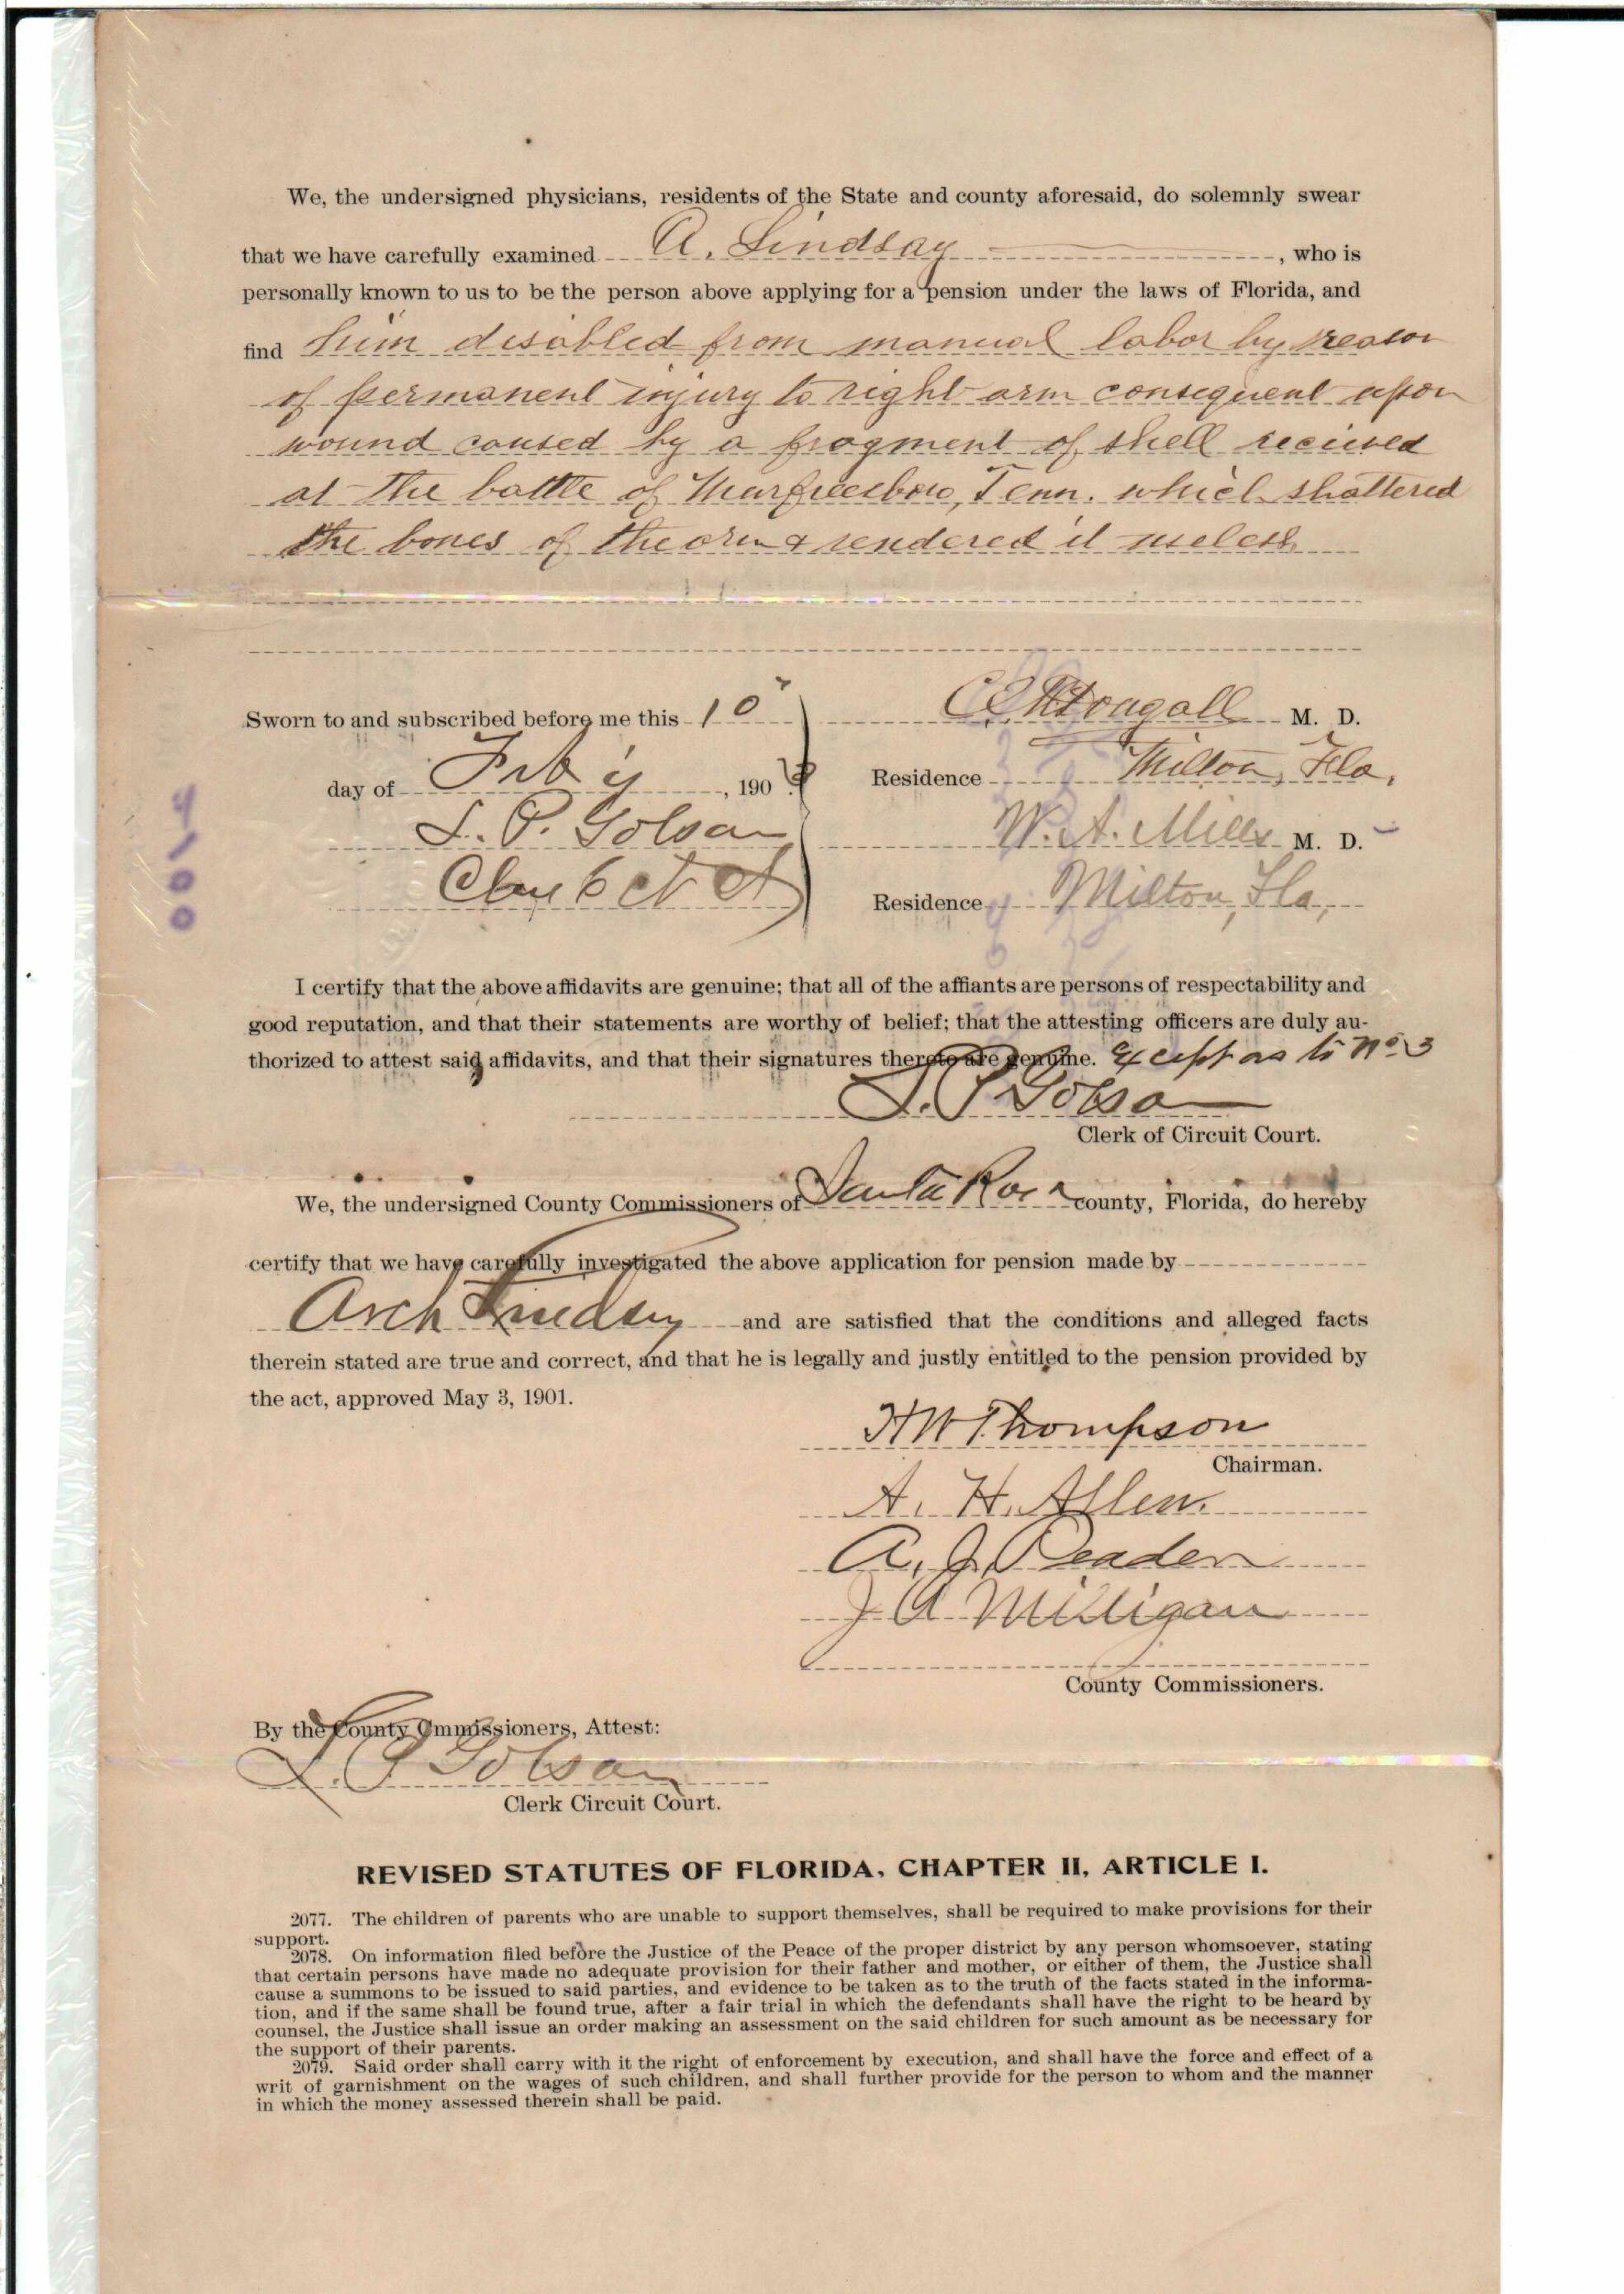 We, the undersigned physicians, residents of the State and county aforesaid, do solemnly swear
that we have carefully examined A. Lindsay, who is
personally known to us to be the person above applying for a pension under the laws of Florida, and
find him disabled from manual labor by reason
of permanent injury to right arm consequent upon
wound caused by a fragment of shell recieved
at the battle of Murfreesboro, Tenn. which shattered
the bones of the arm & rendered it useless
Sworn to and subscribed before me this 10
M. D.
day of Feb'y, 190
Residence Milton, Fla.
W. A. Mills M. D.
Residence Milton, Fla,
0014
I certify that the above affidavits are genuine; that all of the affiants are persons of respectability and
good reputation, and that their statements are worthy of belief; that the attesting officers are duly au-
thorized to attest said affidavits, and that their signatures thereto are genuine. Except as to No 3
Clerk of Circuit Court.
We, the undersigned County Commissioners of Santa Rosa county, Florida, do hereby
certify that we have carefully investigated the above application for pension made by
Arch Lindsey and are satisfied that the conditions and alleged facts
therein stated are true and correct, and that he is legally and justly entitled to the pension provided by
the act, approved May 3, 1901.
H W Thompson
Chairman.
A. H. Allen.
A. J.
J A Milligan
County Commissioners.
By the County Ommissioners, Attest:
Golson
Clerk Circuit Court.
REVISED STATUTES OF FLORIDA, CHAPTER II, ARTICLE I.
2077. The children of parents who are unable to support themselves, shall be required to make provisions for their
support.
2078. On information filed before the Justice of the Peace of the proper district by any person whomsoever, stating
that certain persons have made no adequate provision for their father and mother, or either of them, the Justice shall
cause a summons to be issued to said parties, and evidence to be taken as to the truth of the facts stated in the informa-
tion, and if the same shall be found true, after a fair trial in which the defendants shall have the right to be heard by
counsel, the Justice shall issue an order making an assessment on the said children for such amount as be necessary for
the support of their parents.
2079. Said order shall carry with it the right of enforcement by execution, and shall have the force and effect of a
writ of garnishment on the wages of such children, and shall further provide for the person to whom and the manner
in which the money assessed therein shall be paid.